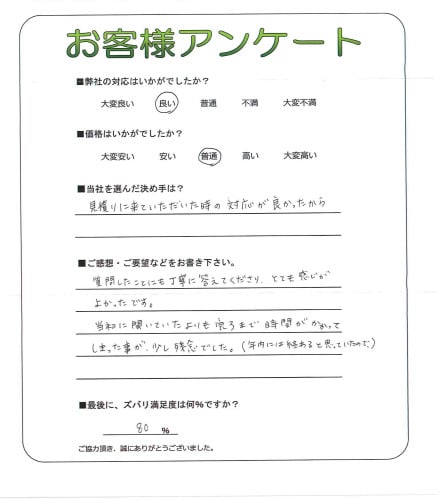 お客様アンケート
■弊社の対応はいかがでしたか？
大変良い 良い 普通 不満 大変不満
■価格はいかがでしたか？
大変安い 安い 普通 高い 大変高い
■当社を選んだ決め手は？
見積りに来ていただいた時の対応が良かったから
■ご感想・ご要望などをお書き下さい。
質問したことにも丁寧に答えてくださり、とても感じが
よかったです。
当初に聞いていたよりも完了まで時間がかかって
しまった事が、少し残念でした。（年内には終わると思っていたので）
■最後に、ズバリ満足度は何％ですか？
80 ％
ご協力頂き、誠にありがとうございました。